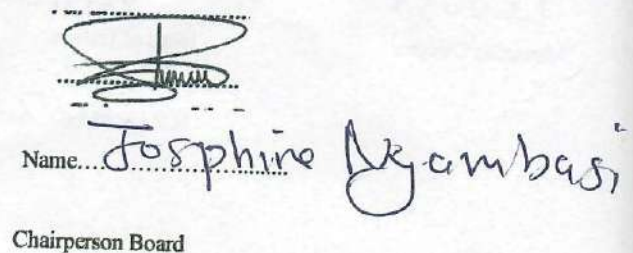 Name....Josphine Ngambasi
Chairperson Board